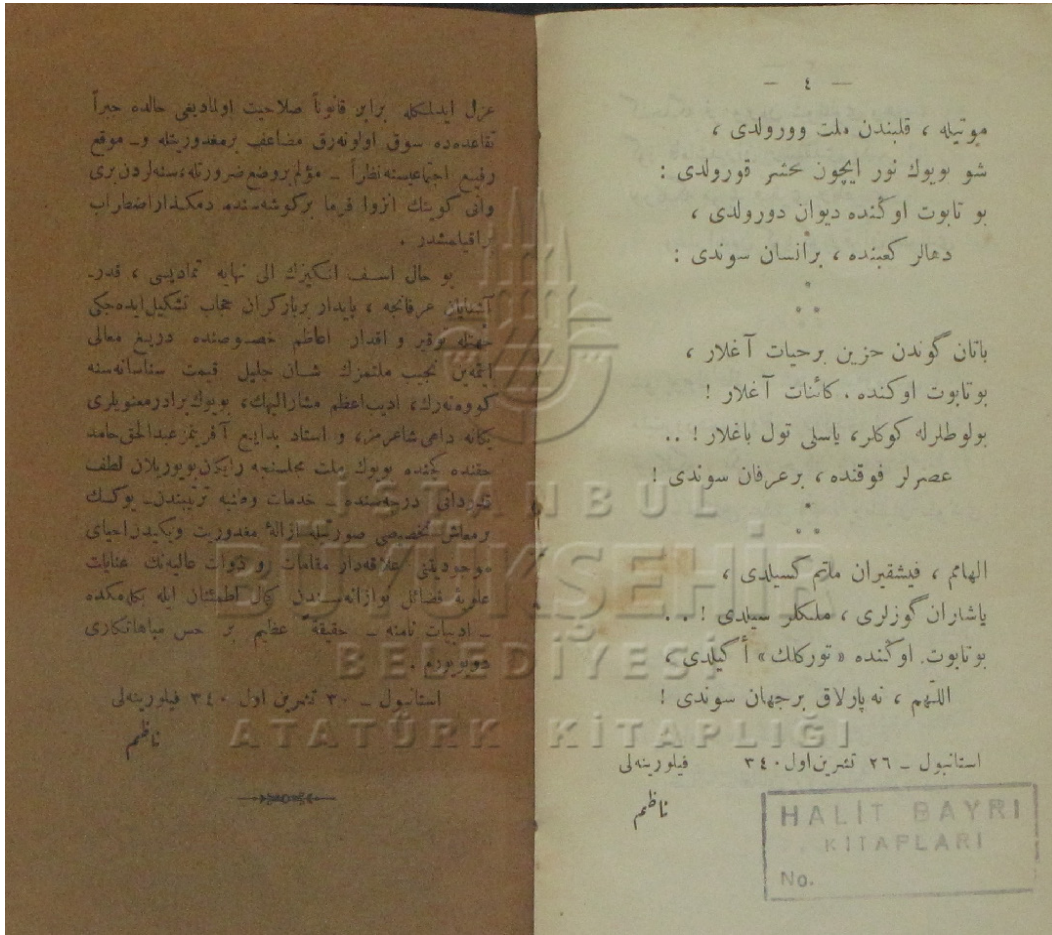 — ٤ —
موتيله ، قلبندن ملت وورولدى ،
شو بويوك نور ايچون محشر قورولدى :
بو تابوت اوڭنده ديوان دورولدى ،
دهالر كعبنده ، برانسان سوندى :
باتان گوندن حزين برحيات آغلار ،
بوتابوت اوكنده . كائنات آغلار !
بولوطلرله كوكلر ، ياسلى تول باغلار ! ..
عصرلر فوقنده ، برعرفان سوندى !
الهامم ، فيشقيران ملتم كسيلدى ،
ياشاران گوزلرى ، ملكلر سيلدى ! ..
بوتابوت اوڭنده « توركلك » أكيلدى ،
اللهم ، نه پارلاق برجهان سوندى !
استانبول ــ ٢٦ تشرين اول ٣٤٠ فيلورينه‌لى
ناظم
HALİT BAYRI
KİTAPLARI
No.
عزل ايدلمكله برابر قانوناً صلاحيت اولماديغى حالده جبراً
تقاعده‌ده سوق اولونه‌رق مضاعف برمغدوريتله و ــ موقع
رفيع اجتماعيسنه نظراً ــ مؤلم بروضع ضرورتله ، سنه‌لردن برى
وانى كوينك انزوا فرما بركوشه‌سنده دمكذار اضطراب
براقيلمشدر .
بو حال اسف انكيزك الى نهايه تماديسى ، قدر
آشنايان عرفانجه ، پايدار بربارگران حجاب تشكيل ايده‌جكى
جهتله توقير و اقدار اعاظم خصوصنده دريغ معالى
ايتمه‌ين نجيب ملتمزك شان جليل قيمت شناسانه‌سنه
كووه‌نه‌رك ، اديب اعظم مشاراليهك ، بويوك برادر معنويلرى
يكانه داهى شاعرمز ، و استاد بدايع آفرينمز عبدالحق حامد
حقنده كچنده بويوك ملت مجلسنجه رايگان بويوريلان لطف
قدردانى درجه‌سنده ــ خدمات وطنيه ترتيبندن ــ يوكسك
برمعاش تخصيصى صورتيله ازالهٔ مغدوريت ويكيدن احياى
موجوديتنى علاقه‌دار مقامات و ذوات عاليه‌نك عنايات
علويهٔ فضائل نوازانه‌سندن كمال اطمئنان ايله بكله‌مكده
ــ ادبيات نامنه ــ حقيقةً عظيم بر حس مباهاتكارى
دويويورم .
استانبول ــ ٣٠ تشرين اول ٣٤٠ فيلورينه‌لى
ناظم
İSTANBUL
BÜYÜKŞEHİR
BELEDİYESİ
ATATÜRK KİTAPLIĞI